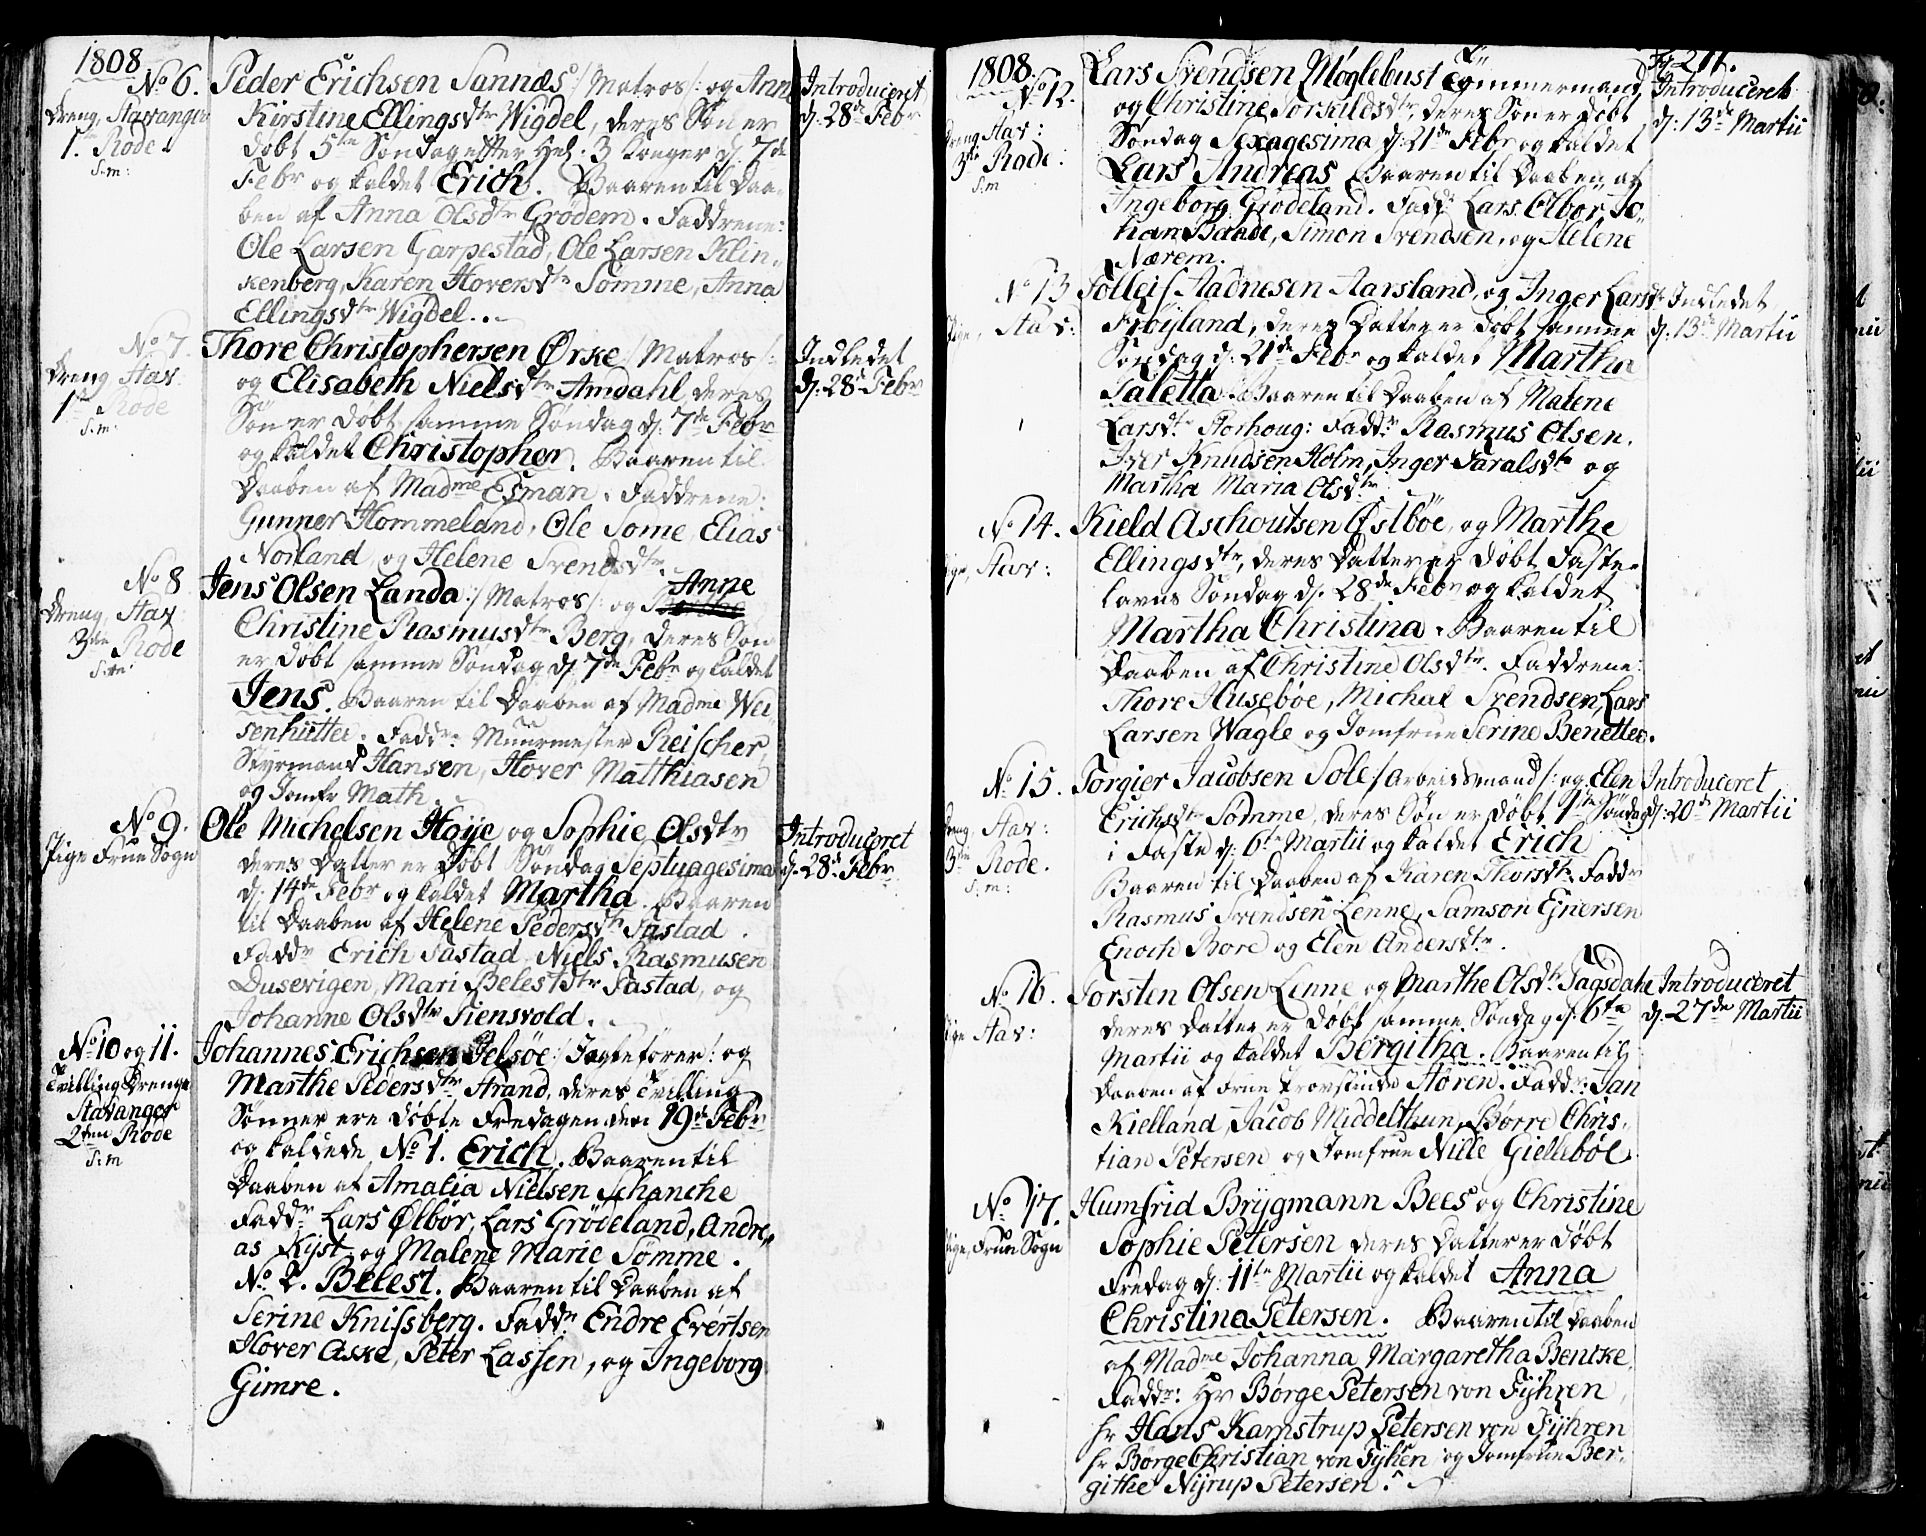 1808
No 6. Peder Erichsen Sannæs /: Matros :/ og Anne
Dreng, Stavanger Kirstine Ellingsdtr Wigdel, deres Søn er
1. Rode. døbt 5te Søndag efter Hel. 3 Konger d. 7de
S:m: Febr og kaldet Erich. Baaren til Daa-
ben af Anna Olsdtr Grödem. Faddrene:
Ole Larsen Garpestad, Ole Larsen Klin-
kenberg, Karen Hoversdtr Sömme, Anna
Ellingsdtr Wigdel.
Introduceret
d. 28de Febr
No 7. Thore Christophersen Ørke /: Matros :/
Dreng Stav: og Elisabeth Nielsdtr Amdahl deres
1ste Rode Søn er døbt samme Søndag d. 7de Febr
S:m: og kaldet Christopher. Baaren til
Daaben af Madme Esman. Faddrene:
Gunner Hommeland, Ole Some, Elias
Norland, og Helene Svendsdtr.
Indledet
d. 28de Febr
No 8 Jens Olsen Landa /: Matros :/ og Anne
Dreng, Stav: Christine Rasmusdtr Berg, deres Søn
3die Rode er døbt samme Søndag d. 7de Febr og kaldet
S:m: Jens. Baaren til Daaben af Madme Wei-
senhütter. Faddr: Muurmester Reischer,
Styrmand Hansen, Hover Matthiasen
og Jomfr Math.
No 9. Ole Michelsen Høije og Sophie Olsdtr
Pige Frue Sogn deres Datter er døbt Søndag Septuagesima
d. 14de Febr og kaldet Martha. Baaren
til Daaben af Helene Pedersdtr Tastad.
Faddr Erich Tastad, Niels Rasmusen
Dusevigen, Mari Belestdtr Tastad, og
Johanne Olsdtr Tiensvold.
Introduceret
d. 28de Febr
No 10 og 11. Johannes Erichsen Pelsöe /: Jagtefører :/ og
Tvilling Drenge Marthe Pedersdtr Strand, deres Tvilling
Stavanger Sønner ere døbte Fredagen den 19de Febr
2den Rode og kaldede No 1. Erich. Baaren til
S:m Daaben af Amalia Nielsen Schanche
Faddr: Lars Ølbör, Lars Grödeland, Andre-
as Kyst, og Malene Marie Sömme.
No 2. Belest. Baaren til Daaben af
Serine Knifsberg. Faddr Endre Evertsen
Hover Aske, Peter Lassen, og Ingeborg
Gimre.
211.
1808.
No 12. Lars Svendsen Möglebust Tömmermand
Dreng Stav: og Christine Torkildsdtr, deres Søn er døbt
3die Rode: Søndag Sexagesima d. 21de Febr og kaldet
S:m Lars Andreas. Baaren til Daaben af
Ingeborg Grödeland. Faddr Lars Ølbör, Jo-
han Baade, Simon Svendsen, og Helene
Nærem.
Introduceret
d. 13de Martii
No 13 Tolleif Aadnesen Aarsland, og Inger Larsdtr
Pige, Stav: Fröyland, deres Datter er døbt samme
Søndag d. 21de Febr og kaldet Martha
Taletta. Baaren til Daaben af Malene
Larsdtr Porhoug: Faddr Rasmus Olsen,
Iver Knudsen Holm, Inger Taralsdtr og
Martha Maria Olsdtr.
Indledet
d. 13de Martii
No 14. Kield Aschoutsen Østböe, og Marthe
Pige, Stav: Ellingsdtr, deres Datter er døbt Faste-
lavns Søndag d. 28de Febr og kaldet
Martha Christina. Baaren til
Daaben af Christine Olsdtr. Faddrene:
Thore Huseböe, Michal Svendsen, Lars
Larsen Wagle og Jomfrue Serine Benetter.
No 15. Torgier Jacobsen Sole /: Arbeidsmand :/ og Elen
Dreng Stav: Erichsdtr Sömme, deres Søn er døbt 1ste Søndag
3die Rode. i Faste d. 6te Martii og kaldet Erich
S:m: Baaren til Daaben af Karen Thorsdtr. Faddr
Rasmus Svendsen Lenne, Samson Ejnersen
Enoch Bore og Elen Andersdtr.
Introduceret
d. 20de Martii
No 16. Torsten Olsen Lenne og Marthe Olsdtr Tagsdahl
Pige Stav: deres Datter er døbt samme Søndag d. 6te
Martii og kaldet Bergitha. Baaren til
Daaben af Frue Provstinde Støren. Faddr: Jan
Kielland, Jacob Middelthun, Børre Chris-
tian Petersen og Jomfrue Nille Gielleböl
Introduceret
d. 27de Martii
No 17. Humfrid Brygmann Bees og Christine
Pige, Frue Sogn Sophie Petersen deres Datter er døbt
Fredag d. 11te Martii og kaldet Anna
Christina Petersen. Baaren til Daaben
af Madme Johanna Margaretha Bentke.
Faddr: Hr Börge Petersen von Fyhren,
hr Hans Kamstrup Petersen von Fyhren
hr Børge Christian von Fyhen og Jomfrue Ber-
githe Nyrup Petersen.